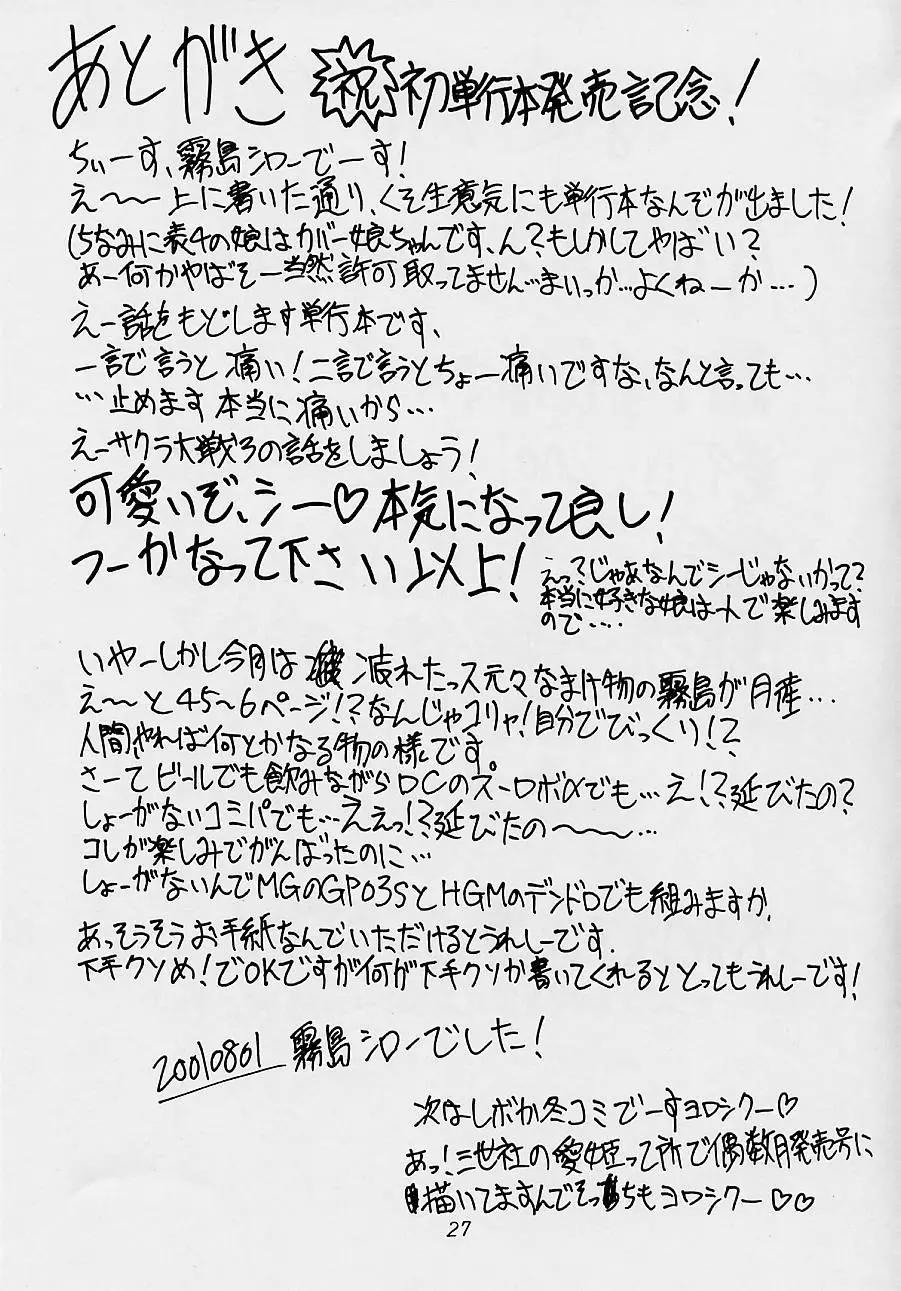 あとがき 祝 初単行本発売記念!
ちぃーす、霧島シローでーす!
え〜〜上に書いた通り、くそ生意気にも単行本なんぞが出ました!
(ちなみに表4の娘はカバー娘ちゃんです、ん?もしかしてやばい?
あー何かやばそー当然許可取ってません…まいっか…よくねーか…)
えー話をもどします単行本です、
一言で言うと痛い!二言で言うとちょー痛いですな、なんと言っても…
…止めます本当に痛いから…
えーサクラ大戦3の話をしましょう!
可愛いぞ、シー♡本気になって良し!
つーかなって下さい以上!
えっ?じゃあなんでシーじゃないかって?
本当に好きな娘は一人で楽しみます
ので‥‥
いやーしかし今月は疲れたっス元々なまけ物の霧島が月産…
え〜と45〜6ページ!?なんじゃコリャ!自分でびっくり!?
人間やれば何とかなる物の様です
さーてビールでも飲みながらDCのスーロボαでも…え!?延びたの?
しょーがないコミパでも…ええっ!?延びたの〜〜〜…
コレが楽しみでがんばったのに…
しょーがないんでMGのGP03SとHGMのデンドロでも組みますか、
あっそうそうお手紙なんでいただけるとうれしーです.
下手クソめ!でOKですが何が下手クソか書いてくれるととってもうれしーです!
20010801 霧島シローでした!
次はレボか冬コミでーすヨロシクー♡
あっ!三世社の愛姫って所で偶数月発売号に
描いてますんでそっちもヨロシクー♡♡
27